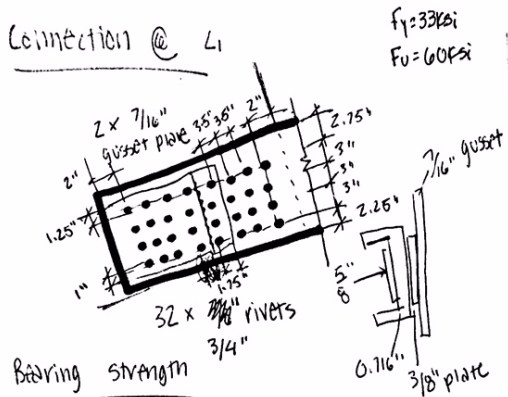 Connection @ L1
Fy=33ksi
Fu=60ksi
2 x 7/16"
gusset plate
3.5" 3.5" 2"
2"
1.25"
1"
1.75"
2.75"
3"
3"
3"
2.25"
32 x rivets
3/4"
7/16" gusset
5"
8
0.716"
3/8" plate
Bearing strength